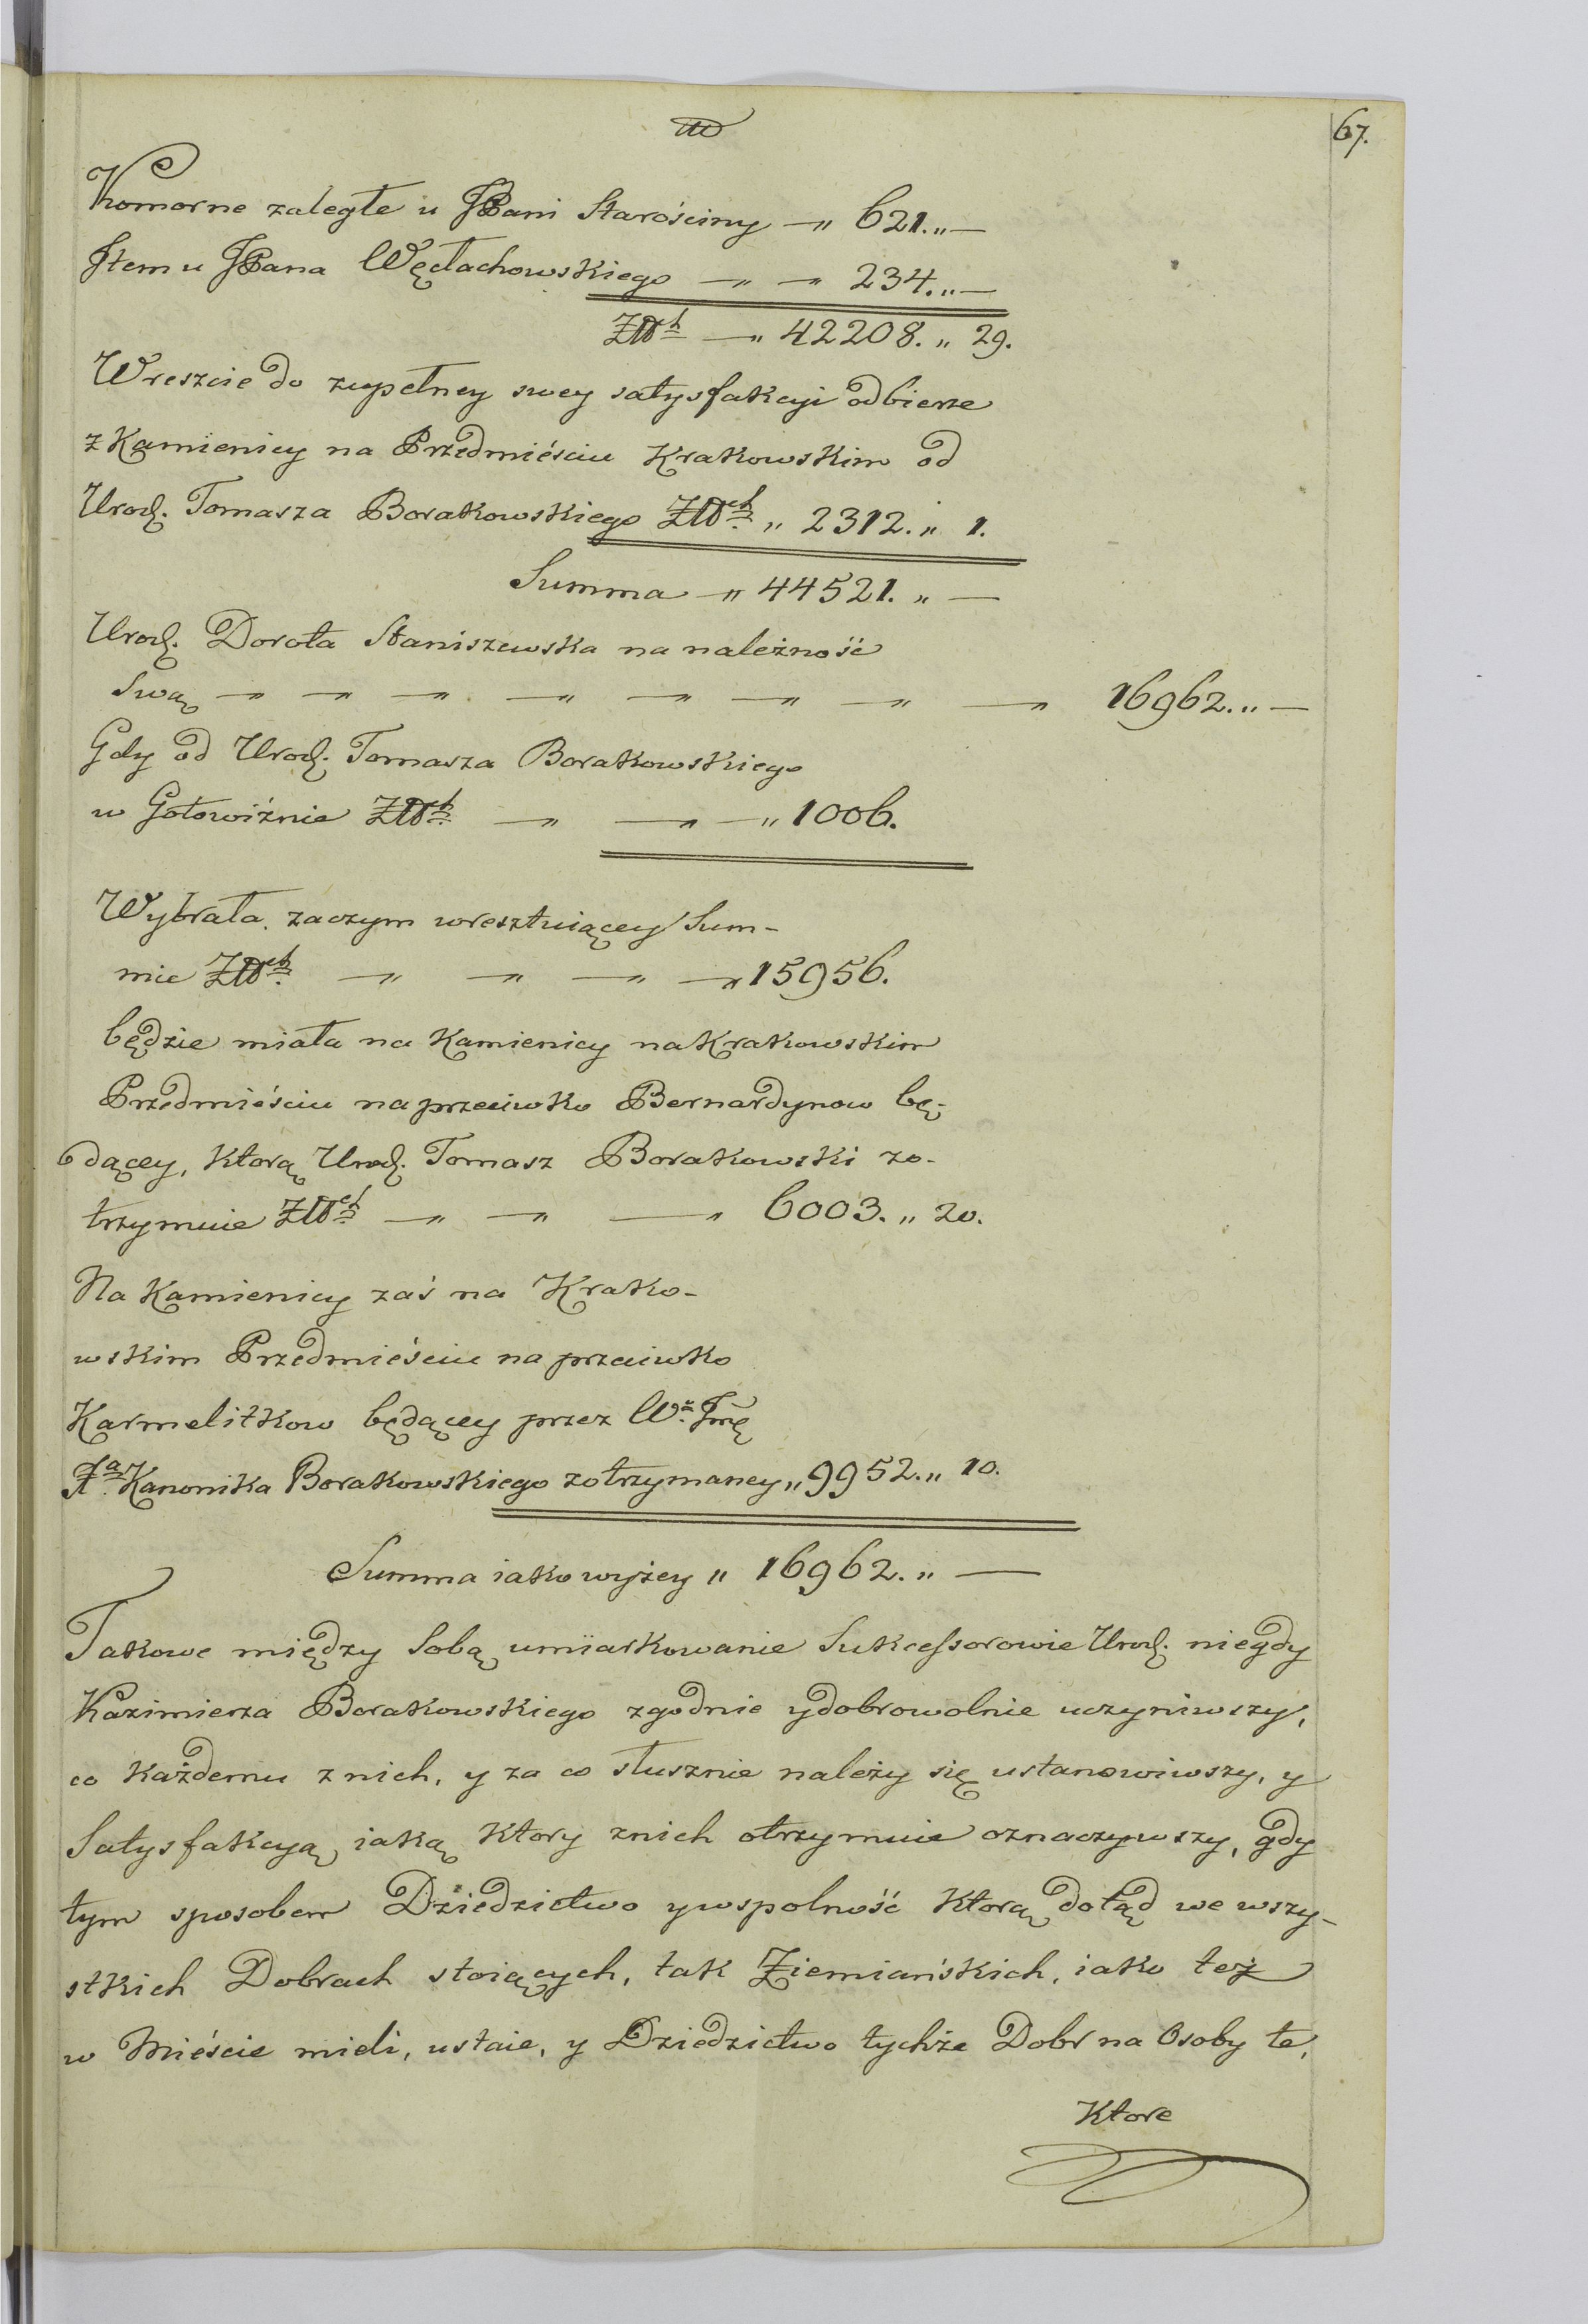 67.
Komorne zaległe u JPani Starościny — „ 621. „ —
Item u JPana Węclachowskiego — „ — „ 234. „ —
Złłch — „ 42208. „ 29.
Wreszcie do zupełney swey satysfakcyi odbierze
z Kamienicy na Przedmiéściu Krakowskim od
Urod. Tomasza Borakowskiego Złłch „ 2312. „ 1.
Summa — „ 44521. „ —
Urod. Dorota Staniszewska na należność
Swą — „ — „ — „ — „ — „ — „ — „ — „ 16962. „ —
Gdy od Urod. Tomasza Borakowskiego
w Gotowiźnie Złłch — „ — „ — „ 1006.
Wybrała. zaczym wresztuiącey Sum-
mie Złłch — „ — „ — „ — „ 15956.
będzie miała na Kamienicy na Krakowskim
Przedmiéściu naprzeciwko Bernardynow bę-
dącey, Ktorą Urod. Tomasz Borakowski zo-
trzymuie Złłch — „ — „ — „ 6003. „ 20.
Na Kamienicy zaś na Krako-
wskim Przedmieściu na przeciwko
Karmelitkow będącey przez Wo. Jmę
Xa. Kanonika Borakowskiego zotrzymaney „ 9952. „ 10.
Summa iako wyżey „ 16962. „ —
Takowe między Sobą umiarkowanie Sukcessorowie Urod. niegdy
Kazimierza Borakowskiego zgodnie y dobrowolnie uczyniwszy,
co każdemu z nich, y za co słusznie należy się ustanowiwszy, y
Satysfakcyą iaką Ktory z nich otrzymuie oznaczywszy, gdy
tym sposobem Dziedzictwo y wspolność Ktorą dotąd we wszy-
stkich Dobrach stoiących, tak Ziemiańskich, iako też
w Mieście mieli, ustaie, y Dziedzictwo tychże Dobr na Osoby te,
Ktore